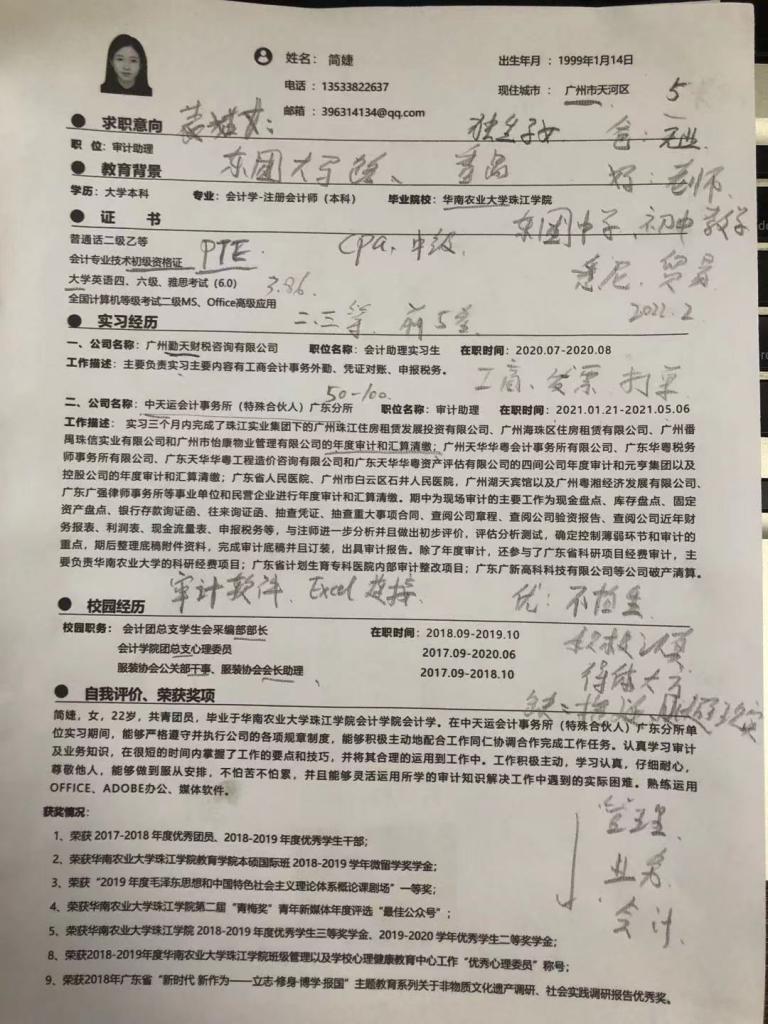 姓名：简婕 出生年月 ：1999年1月14日
电话 ：13533822637 现住城市 ：广州市天河区 5
邮箱 ：396314134@qq.com
求职意向 独生子女 爸：
职 位：审计助理
教育背景 东圃大 妈：老师
学历：大学本科 专业：会计学-注册会计师（本科） 毕业院校：华南农业大学珠江学院
证 书 东圃中学、初中数学
普通话二级乙等
会计专业技术初级资格证 PTE cpa、中级 悉尼、贸易
大学英语四、六级、雅思考试（6.0） 3.86 2022.2
全国计算机等级考试二级MS、Office高级应用
实习经历 二、三等 前5
一、公司名称：广州勤天财税咨询有限公司 职位名称：会计助理实习生 在职时间：2020.07-2020.08
工作描述：主要负责实习主要内容有工商会计事务外勤、凭证对账、申报税务。 工商、发票
50-100
二、公司名称：中天运会计事务所（特殊合伙人）广东分所 职位名称：审计助理 在职时间：2021.01.21-2021.05.06
工作描述： 实习三个月内完成了珠江实业集团下的广州珠江住房租赁发展投资有限公司、广州海珠区住房租赁有限公司、广州番
禺珠信实业有限公司和广州市怡康物业管理有限公司的年度审计和汇算清缴；广州天华华粤会计事务所有限公司、广东华粤税务
师事务所有限公司、广东天华华粤工程造价咨询有限公司和广东天华华粤资产评估有限公司的四间公司年度审计和元亨集团以及
控股公司的年度审计和汇算清缴；广东省人民医院、广州市白云区石井人民医院，广州湖天宾馆以及广州粤湘经济发展有限公司、
广东广强律师事务所等事业单位和民营企业进行年度审计和汇算清缴。期中为现场审计的主要工作为现金盘点、库存盘点、固定
资产盘点、银行存款询证函、往来询证函、抽查凭证、抽查重大事项合同、查阅公司章程、查阅公司验资报告、查阅公司近年财
务报表、利润表、现金流量表、申报税务等，与注师进一步分析并且做出初步评价，评估分析测试，确定控制薄弱环节和审计的
重点，期后整理底稿附件资料，完成审计底稿并且订装，出具审计报告。除了年度审计，还参与了广东省科研项目经费审计，主
要负责华南农业大学的科研经费项目；广东省计划生育专科医院内部审计整改项目；广东广新高科科技有限公司等公司破产清算。
审计软件、Excel 优：
校园经历
校园职务： 会计团总支学生会采编部部长 在职时间：2018.09-2019.10 积极认真
会计学院团总支心理委员 2017.09-2020.06
服装协会公关部干事、服装协会会长助理 2017.09-2018.10
自我评价、荣获奖项
简婕，女，22岁，共青团员，毕业于华南农业大学珠江学院会计学院会计学。在中天运会计事务所（特殊合伙人）广东分所单
位实习期间，能够严格遵守并执行公司的各项规章制度，能够积极主动地配合工作同仁协调合作完成工作任务。认真学习审计
及业务知识，在很短的时间内掌握了工作的要点和技巧，并将其合理的运用到工作中。工作积极主动，学习认真，仔细耐心，
尊敬他人，能够做到服从安排，不怕苦不怕累，并且能够灵活运用所学的审计知识解决工作中遇到的实际困难。熟练运用
OFFICE、ADOBE办公、媒体软件。
获奖情况：
1、荣获 2017-2018 年度优秀团员、2018-2019 年度优秀学生干部；
管理
2、荣获华南农业大学珠江学院教育学院本硕国际班 2018-2019 学年微留学奖学金；
业务
3、荣获“2019 年度毛泽东思想和中国特色社会主义理论体系概论课剧场”一等奖；
4、荣获华南农业大学珠江学院第二届“青梅奖”青年新媒体年度评选“最佳公众号”；
会计
5、荣获华南农业大学珠江学院 2018-2019 年度优秀学生三等奖学金、2019-2020 学年优秀学生二等奖学金；
8、荣获2018-2019年度华南农业大学珠江学院班级管理以及学校心理健康教育中心工作“优秀心理委员”称号；
9、荣获2018年广东省“新时代 新作为——立志·修身·博学·报国”主题教育系列关于非物质文化遗产调研、社会实践调研报告优秀奖。